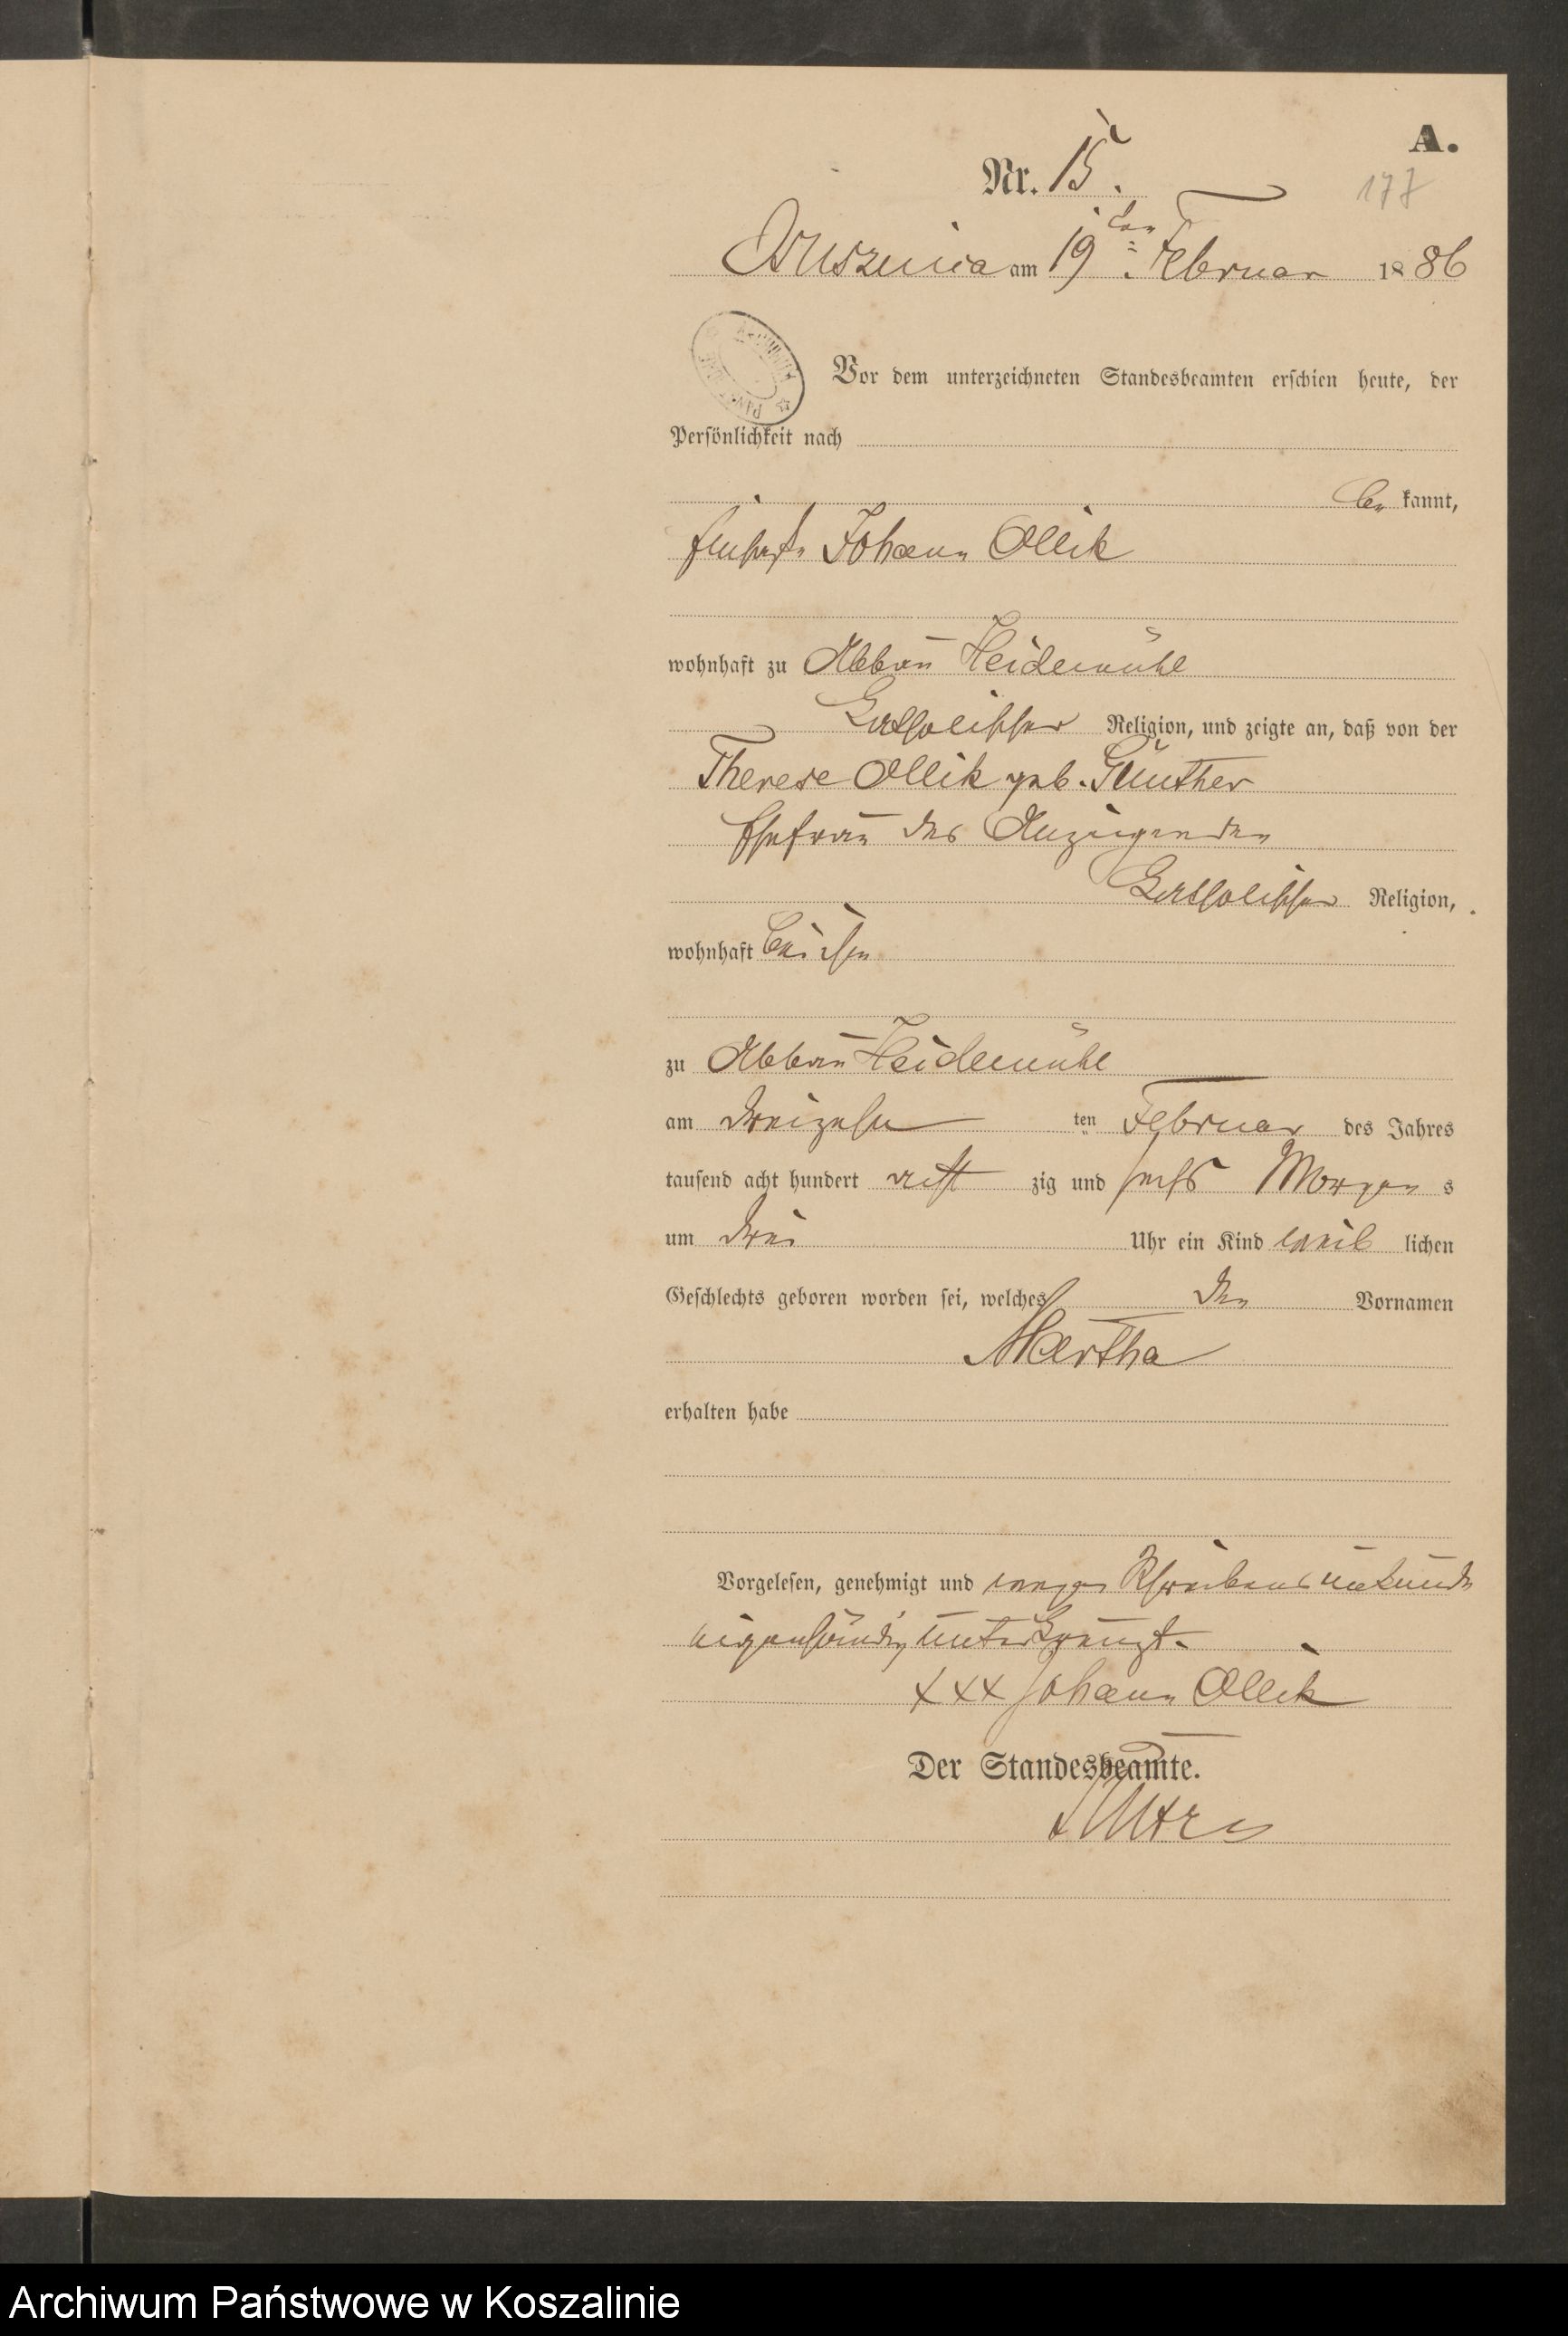 A.
Nr. 15.
177
am 19ten Februar 1886
Vor dem unterzeichneten Standesbeamten erschien heute, der
Persönlichkeit nach
be kannt,
Johann Ollik
wohnhaft zu Abbau Heidemühl
katholischer Religion, und zeigte an, daß von der
Therese Ollik geb. Günther
Ehefrau des Anzeigenden
katholischer Religion,
wohnhaft bei ihm
zu Abbau Heidemühl
am dreizehn ten Februar des Jahres
tausend acht hundert acht zig und sechs Morgens
um drei Uhr ein Kind weib lichen
Geschlechts geboren worden sei, welches den Vornamen
Martha
erhalten habe
Vorgelesen, genehmigt und wegen Schreibensunkunde
eigenhändig unterkreuzt.
xxx Johann Ollik
Der Standesbeamte.
Archiwum Państwowe w Koszalinie